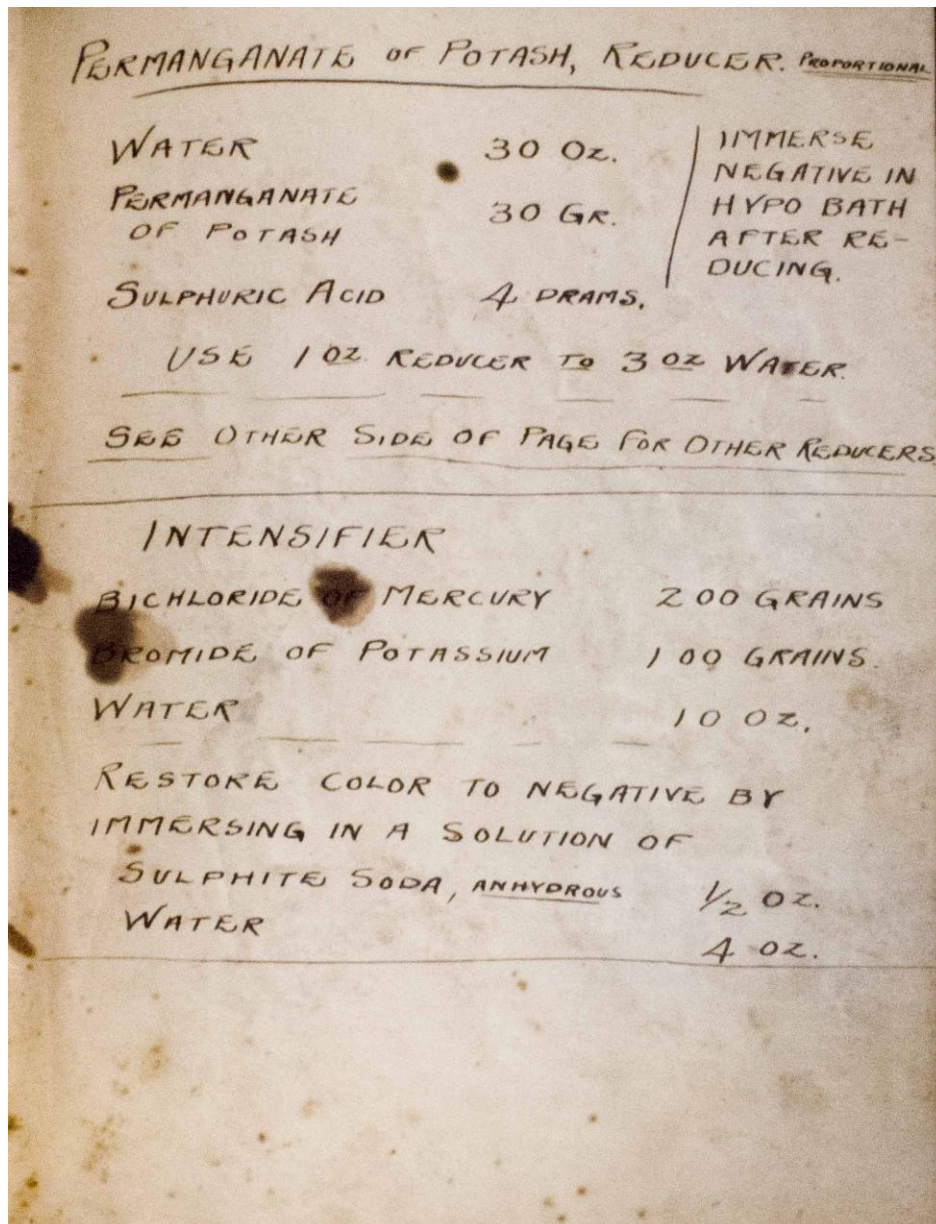 PERMANGANATE OF POTASH, REDUCER. PROPORTIONAL
WATER 30 OZ.
PERMANGANATE
OF POTASH 30 GR.
SULPHURIC ACID 4 DRAMS.
IMMERSE
NEGATIVE IN
HYPO BATH
AFTER RE-
DUCING.
USE 1 OZ REDUCER TO 3 OZ WATER.
SEE OTHER SIDE OF PAGE FOR OTHER REDUCERS
INTENSIFIER
BICHLORIDE OF MERCURY 200 GRAINS
BROMIDE OF POTASSIUM 100 GRAINS.
WATER 10 OZ.
RESTORE COLOR TO NEGATIVE BY
IMMERSING IN A SOLUTION OF
SULPHITE SODA, ANHYDROUS 1/2 OZ.
WATER 4 OZ.